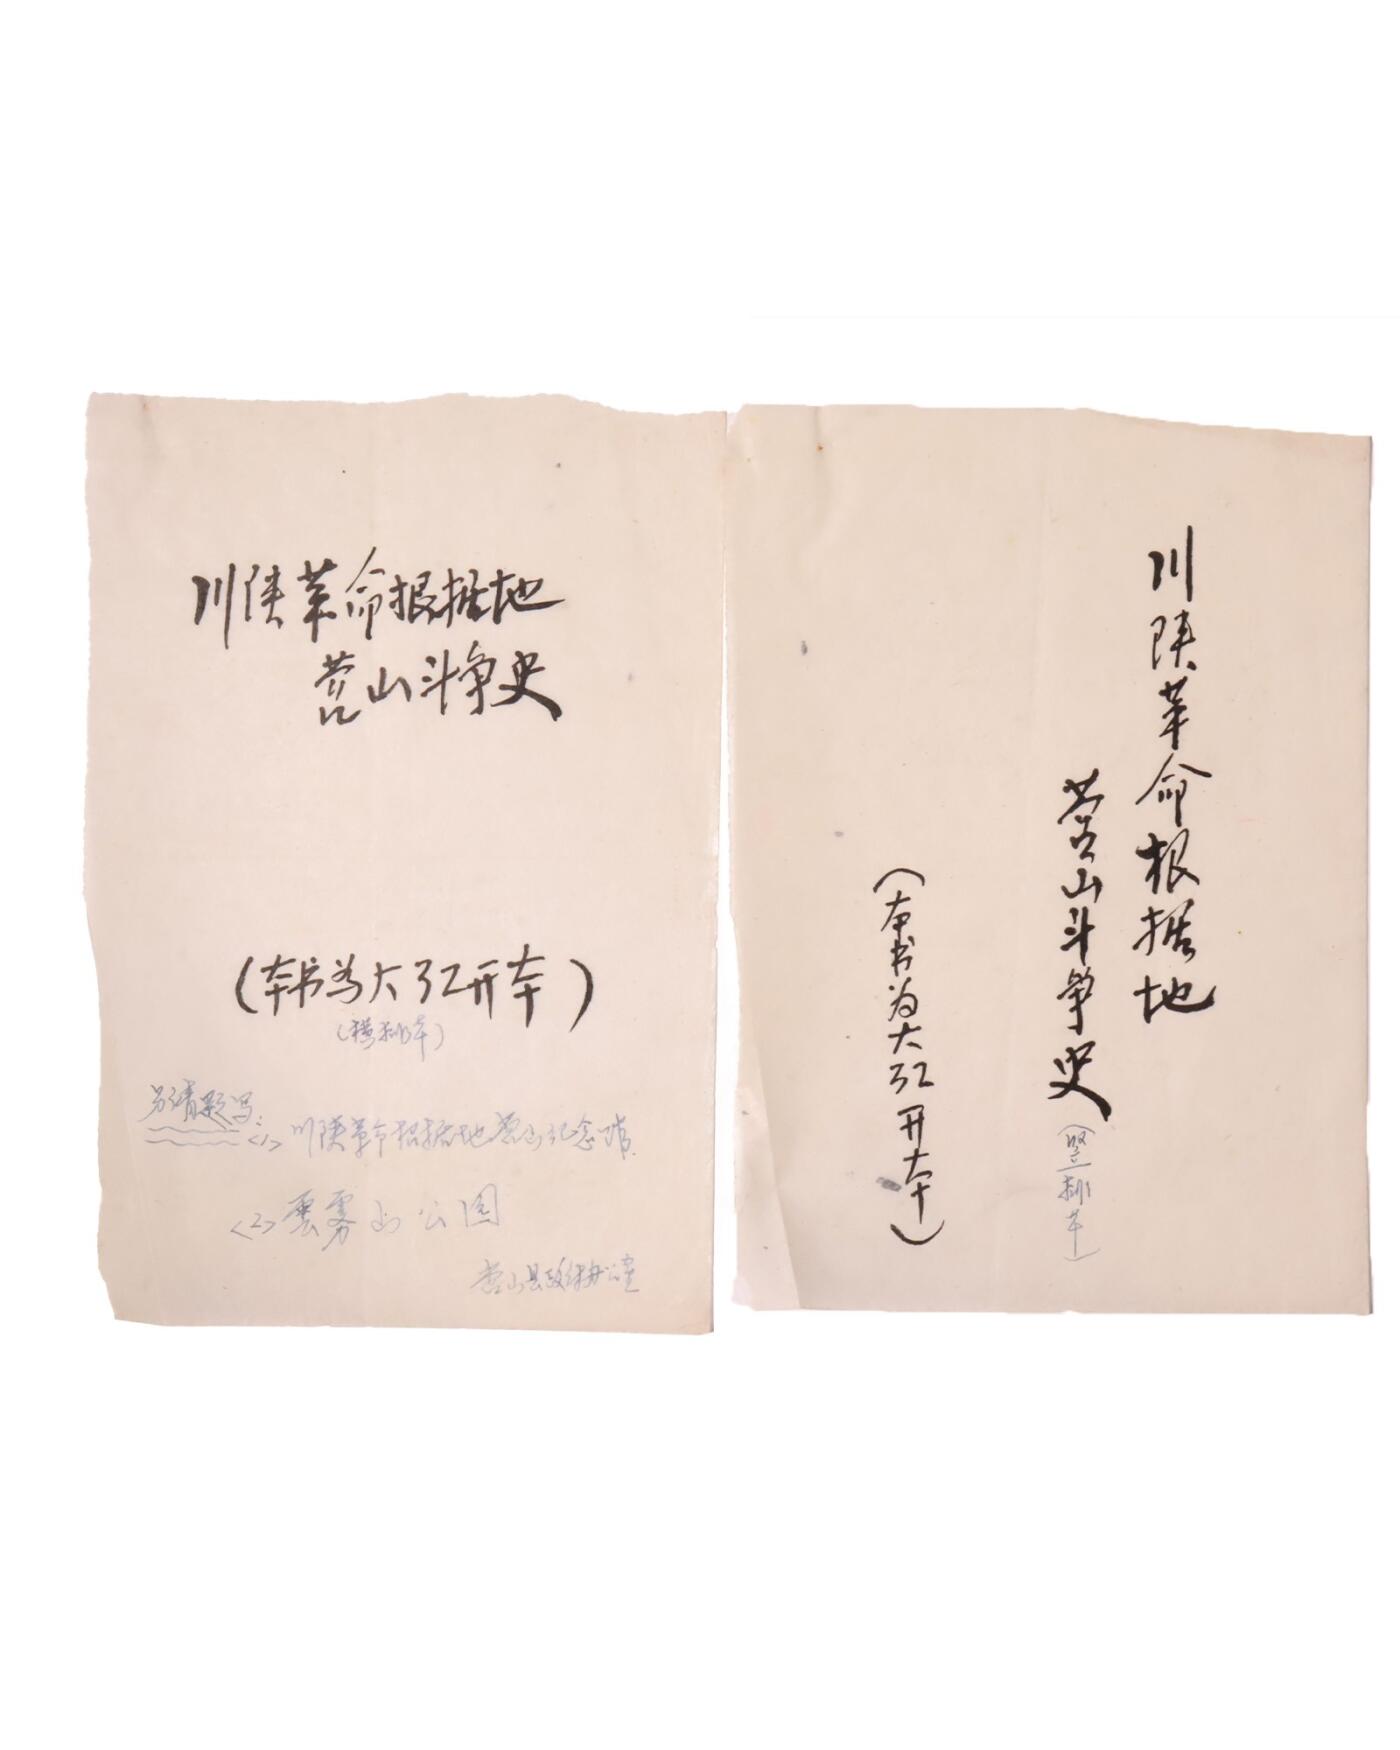 川陕革命根据地
营山斗争史
（本书为大32开本）
（横排本）
另请题写：
<1> 川陕革命根据地营山纪念馆.
<2> 雲雾山公园
营山县政协办公室
川陕革命根据地
营山斗争史（竖排本）
（本书为大32开本）